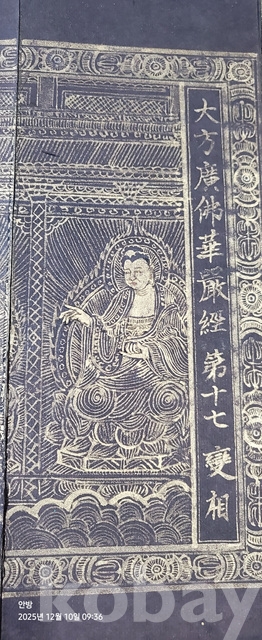 大方廣佛華嚴經第十七變相
안방
2025년 12월 10일 09:36
kobay